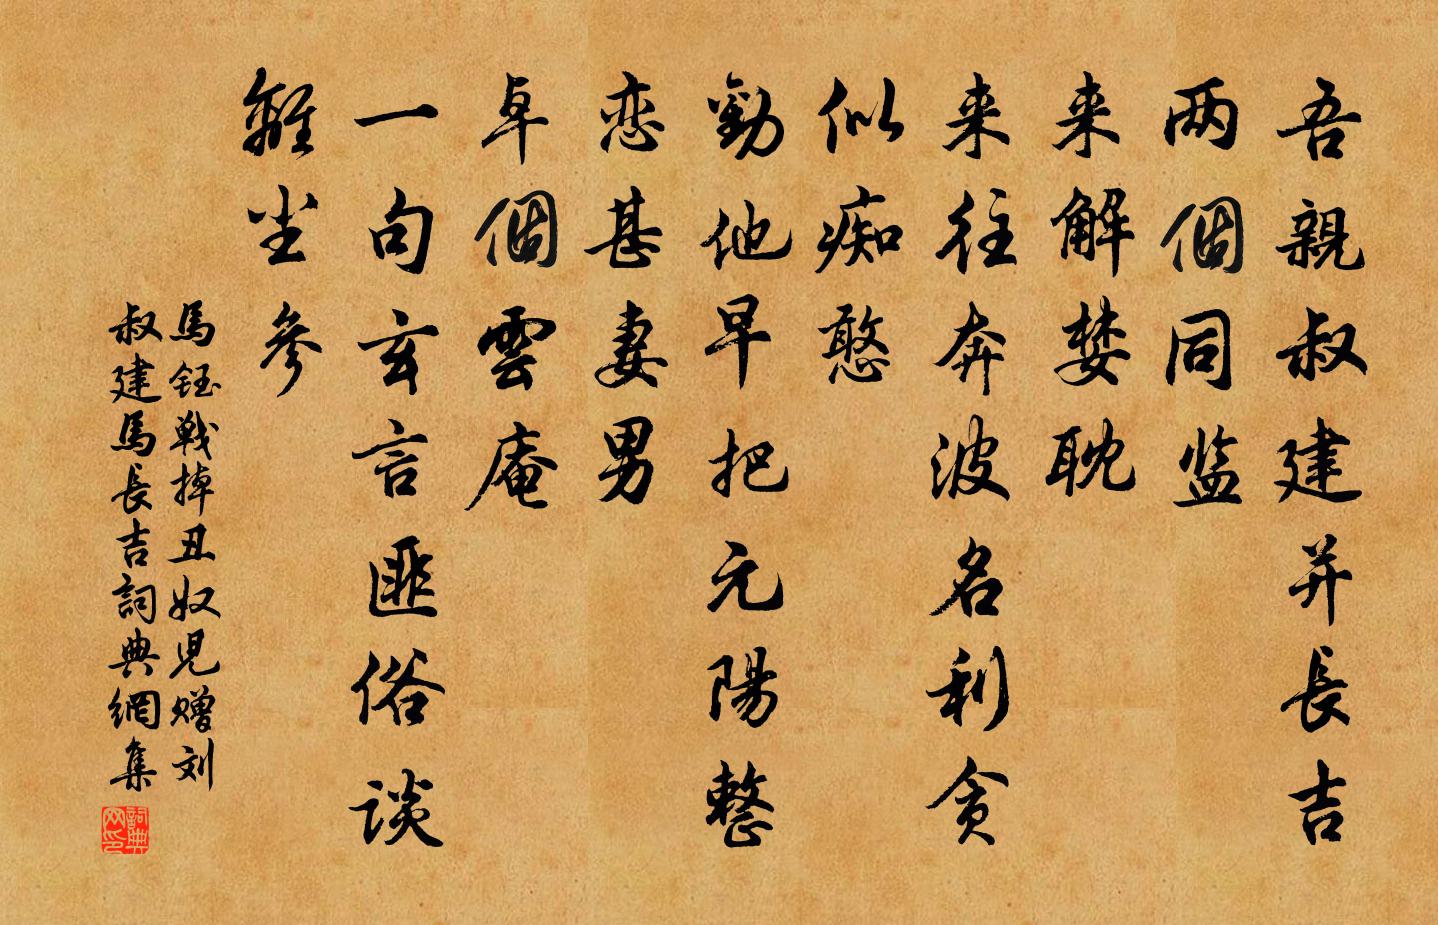 吾親叔建并長吉
两個同监
来解婪耽
来往奔波名利贪
似痴憨
勸他早把元陽整
恋甚妻男
卓個雲庵
一句玄言匪俗谈
離尘參
馬鈺戦掉丑奴児赠刘
叔建馬長吉詞典網集
詞典网印